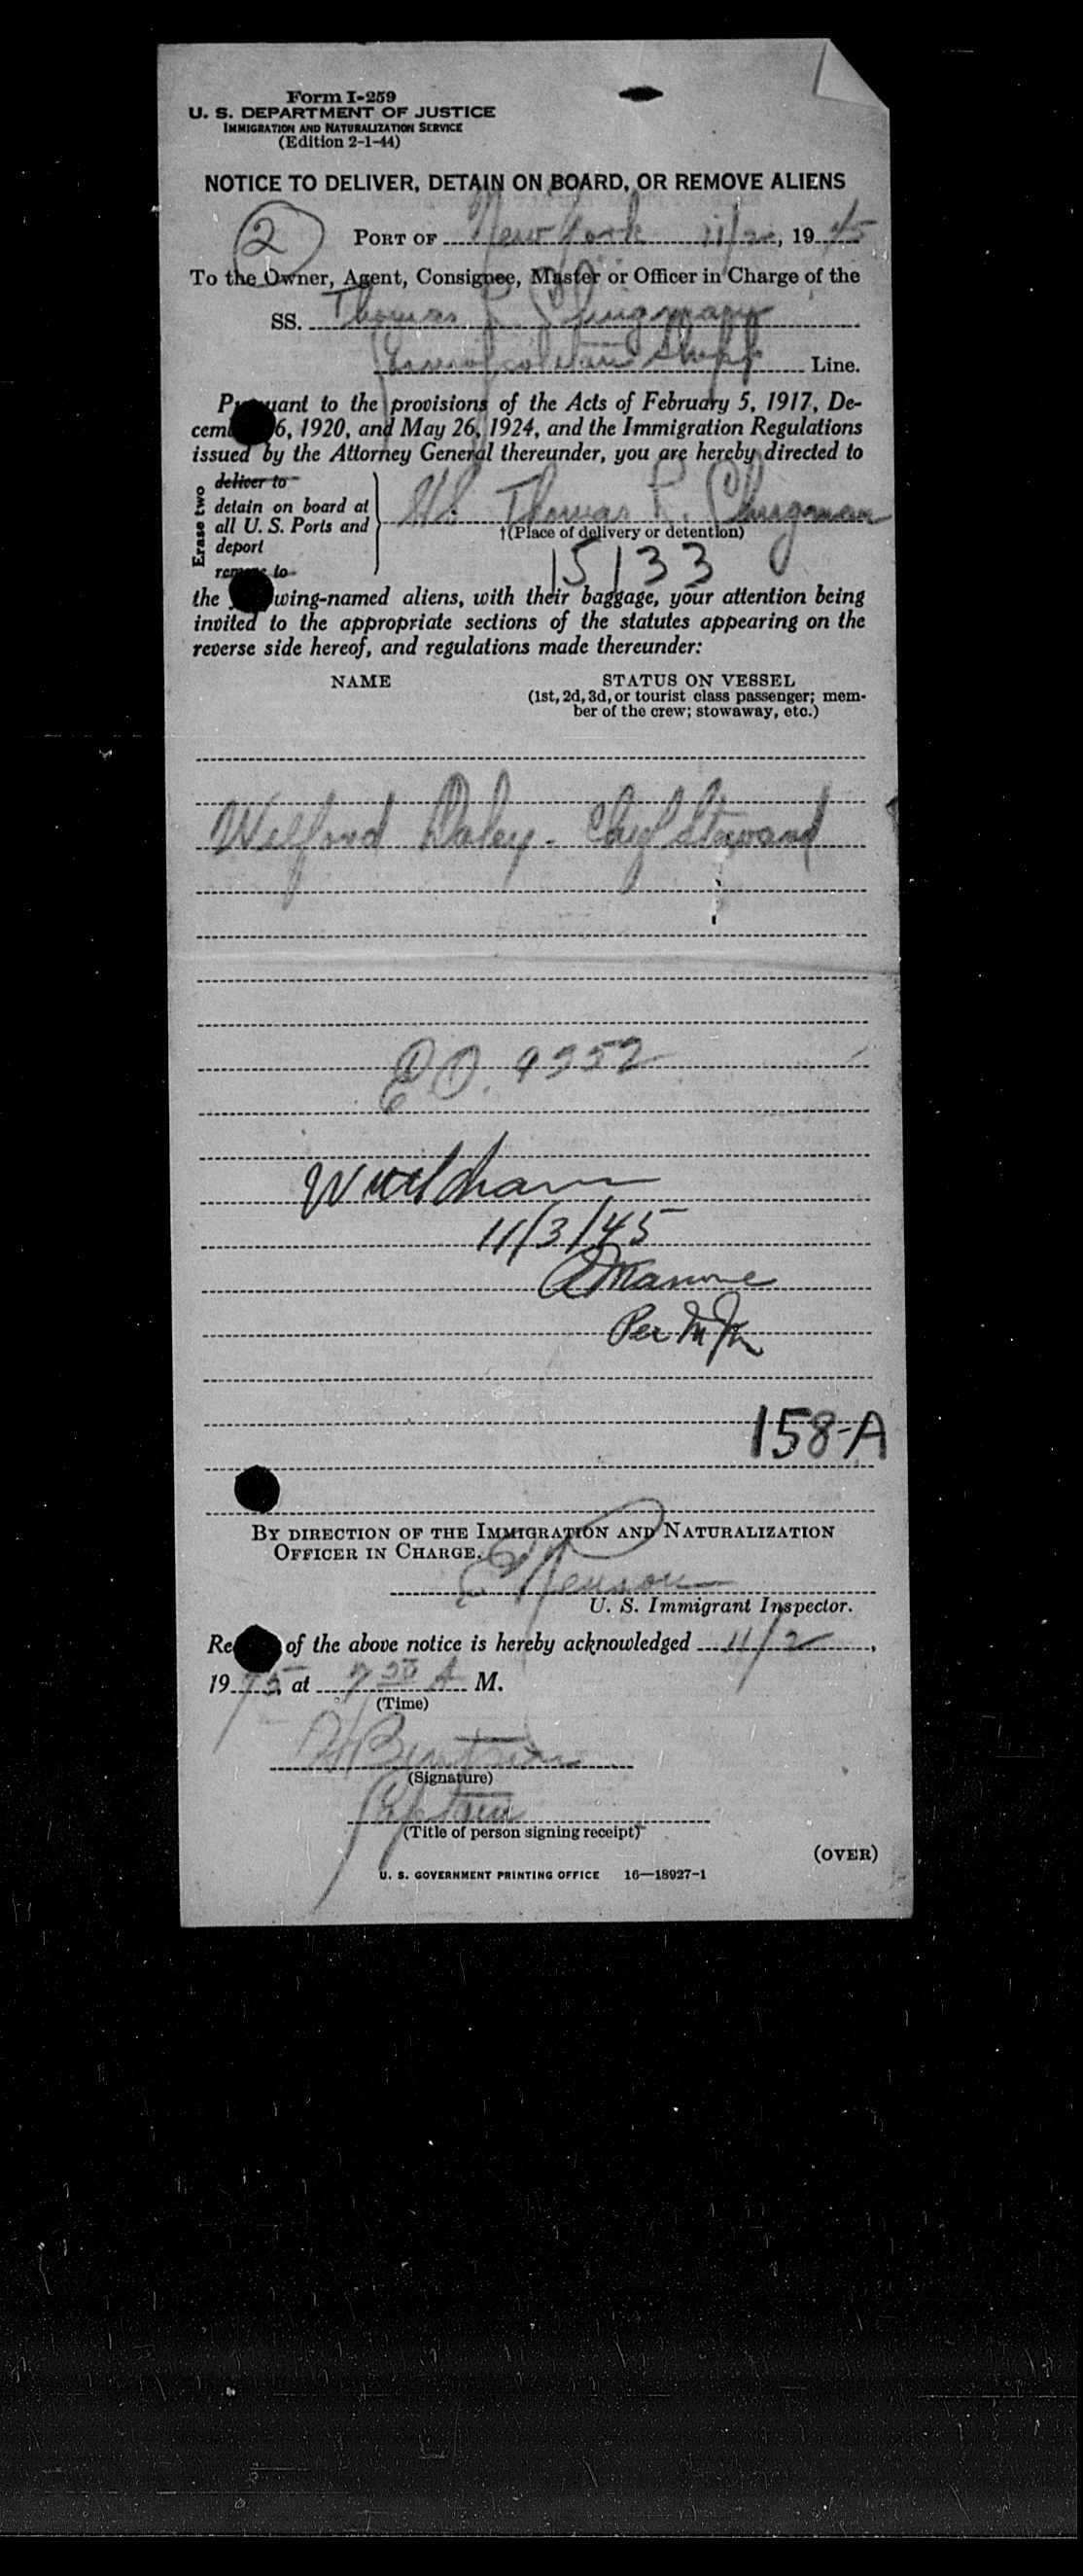 Form I-259
U. S. DEPARTMENT OF JUSTICE
IMMIGRATION AND NATURALIZATION SERVICE
(Edition 2-1-44)
NOTICE TO DELIVER, DETAIN ON BOARD, OR REMOVE ALIENS
2
PORT OF New York 11/2, 1945
To the Owner, Agent, Consignee, Master or Officer in Charge of the
SS. Thomas
Line.
Pursuant to the provisions of the Acts of February 5, 1917, De-
cember 26, 1920, and May 26, 1924, and the Immigration Regulations
issued by the Attorney General thereunder, you are hereby directed to
Erase two
deliver to
detain on board at
all U. S. Ports and
deport
remove to
SS Thomas R.
†(Place of delivery or detention)
15133
the following-named aliens, with their baggage, your attention being
invited to the appropriate sections of the statutes appearing on the
reverse side hereof, and regulations made thereunder:
NAME
STATUS ON VESSEL
(1st, 2d, 3d, or tourist class passenger; mem-
ber of the crew; stowaway, etc.)
Wilford Daley - Chief Steward
E.O. 9352
Withdrawn
11/3/45
Per
158-A
BY DIRECTION OF THE IMMIGRATION AND NATURALIZATION
OFFICER IN CHARGE.
U. S. Immigrant Inspector.
Receipt of the above notice is hereby acknowledged 11/2,
1945, at 7 30 A M.
(Time)
(Signature)
Captain
(Title of person signing receipt)
(OVER)
U. S. GOVERNMENT PRINTING OFFICE 16—18927-1